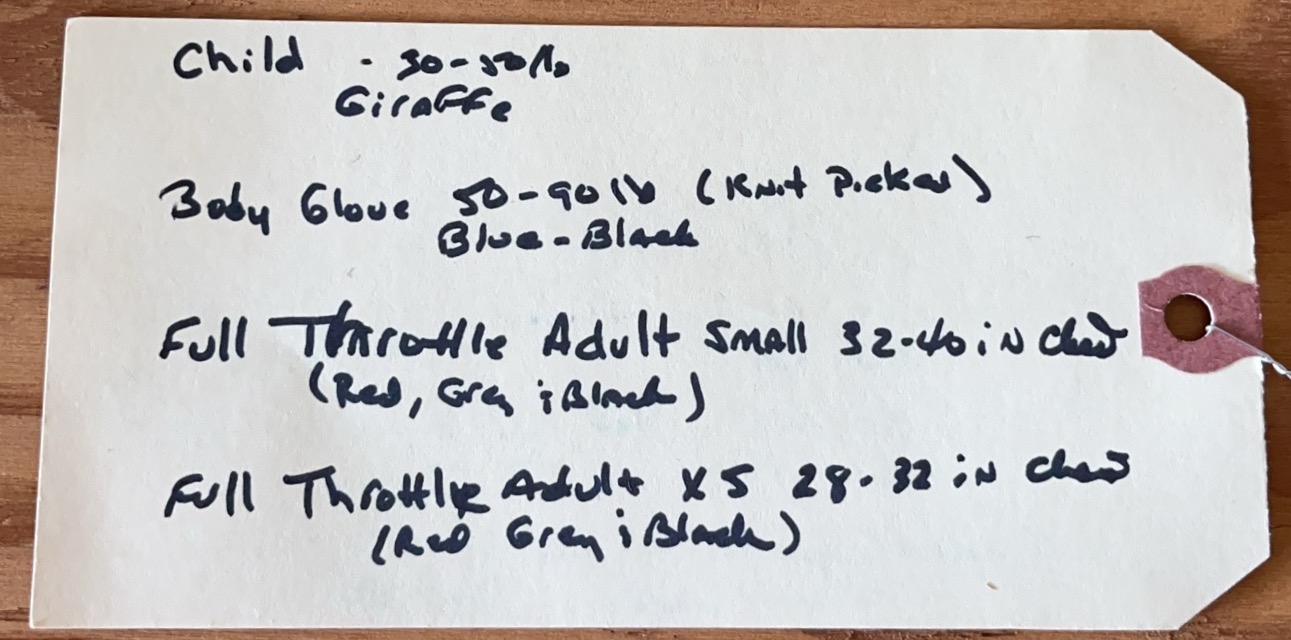 Child - 30-50 lb
Giraffe
Body Glove 50-90 lb (Knit Picker)
Blue-Black
Full Throttle Adult Small 32-40 in Chest
(Red, Grey & Black)
Full Throttle Adult XS 28-32 in Chest
(Red Grey & Black)